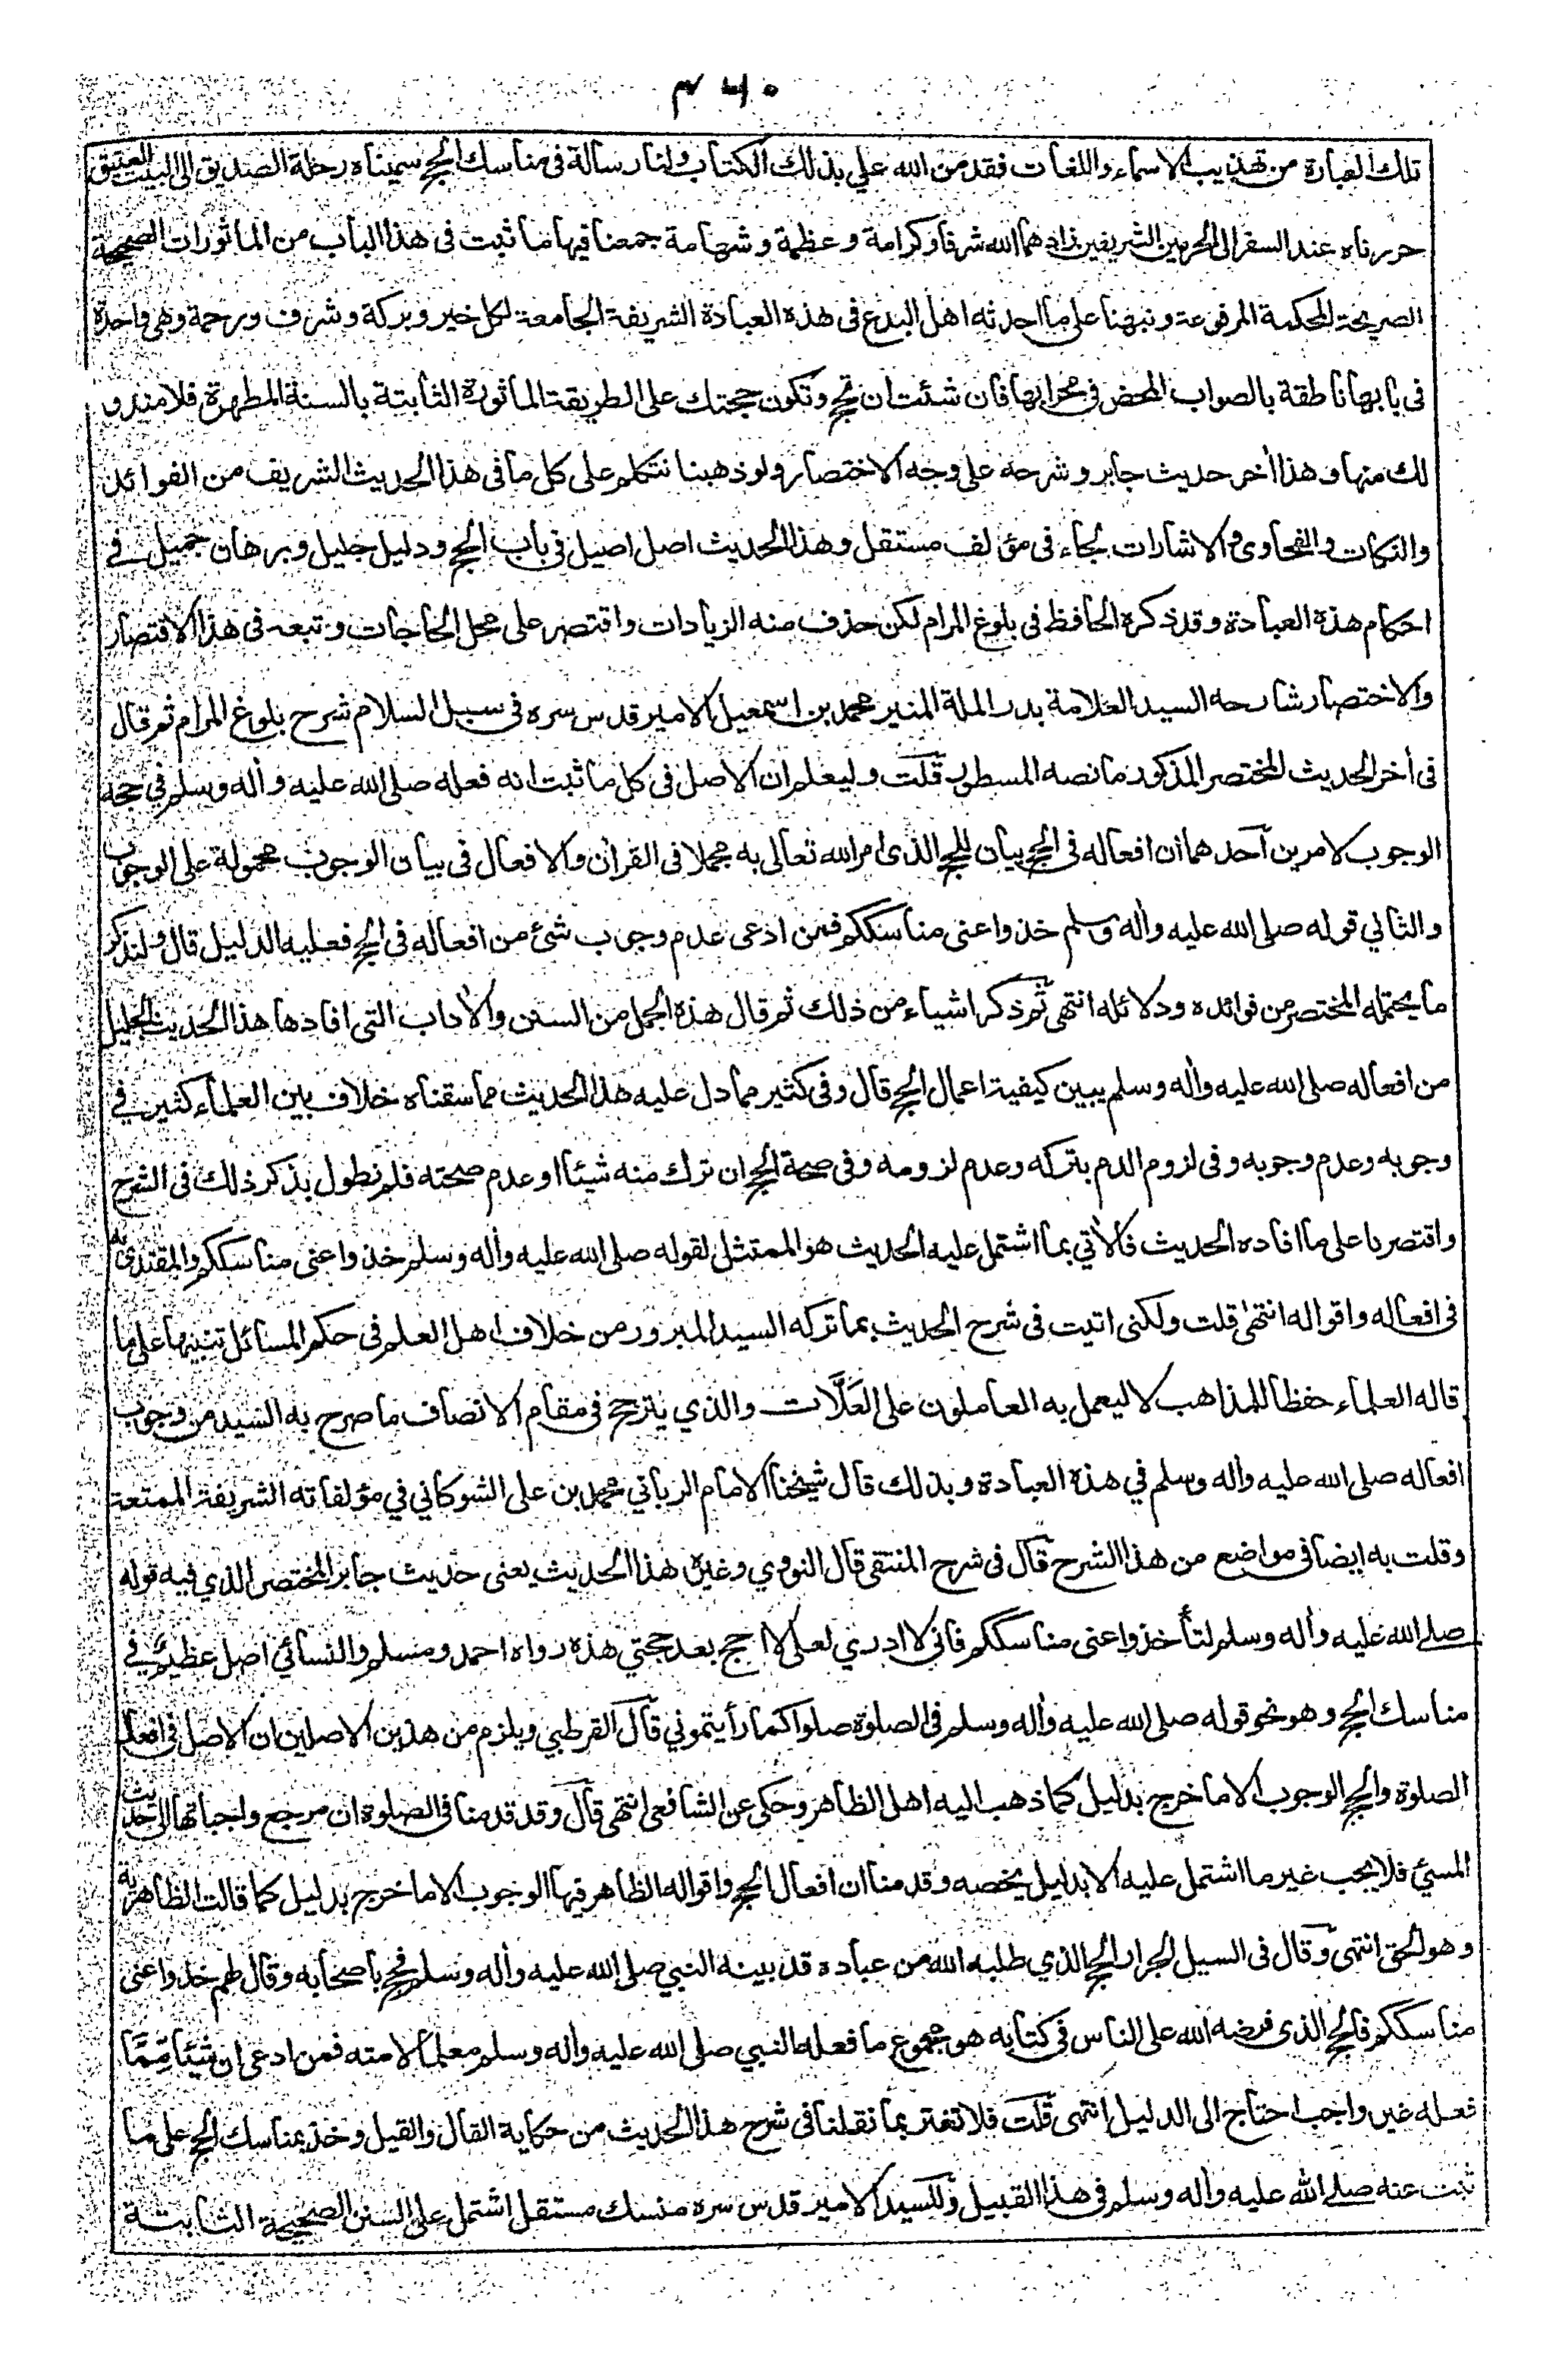 ٤٦٠
تلك العبارة من تهذيب الاسماء واللغات فقد من الله علي بذلك الكتاب ولنا رسالة في مناسك الحج سميناه رحلة الصديق الى البيت العتيق
حررناه عند السفر الى الحرمين الشريفين زادهما الله شرفا وكرامة وعظمة وشهامة جمعنا فيها ما ثبت في هذا الباب من الماثورات الصحيحة
الصريحة المحكمة المرفوعة ونبهنا على ما احدثه اهل البدع في هذه العبادة الشريفة الجامعة لكل خير وبركة وشرف ورحمة وهي واحدة
في بابها ناطقة بالصواب المحض في محرابها فان شئت ان تحج وتكون حجتك على الطريقة الماثورة الثابتة بالسنة المطهرة فلا مندو
لك منها وهذا أخر حديث جابر وشرحه على وجه الاختصار ولو ذهبنا نتكلم على كل ما في هذا الحديث الشريف من الفوائد
والنكات والفحاوى والاشارات لجاء في مؤلف مستقل وهذا الحديث اصل اصيل في باب الحج ودليل جليل وبرهان جميل في
احكام هذة العبادة وقد ذكره الحافظ في بلوغ المرام لكن حذف منه الزيادات واقتصر على محل الحاجات وتبعه في هذا الاقتصار
والاختصار شارحه السيد العلامة بدر الملة المنير محمد بن اسمعيل الامير قدس سره في سبل السلام شرح بلوغ المرام ثم قال
في أخر الحديث المختصر المذكور ما نصه المسطور قلت وليعلم ان الاصل في كل ما ثبت انه فعله صلى الله عليه وأله وسلم في حجه
الوجوب لامرين أحدهما ان افعاله في الحج بيان للحج الذى امر الله تعالى به مجملا في القرأن والافعال في بيان الوجوب محمولة على الوجوب
والثاني قوله صلى الله عليه وأله وسلم خذوا عنى مناسككم فمن ادعى عدم وجوب شئ من افعاله في الحج فعليه الدليل قال ولنذكر
ما يحتمله المختصر من فوائده ودلائله انتهى ثم ذكر اشياء من ذلك ثم قال هذه الجمل من السنن والأداب التى افادها هذا الحديث الجليل
من افعاله صلى الله عليه وأله وسلم يبين كيفية اعمال الحج قال وفى كثير مما دل عليه هذا الحديث مما سقناه خلاف بين العلماء كثير في
وجوبه وعدم وجوبه وفى لزوم الدم بتركه وعدم لزومه وفى صحة الحج ان ترك منه شيئا او عدم صحته فلم نطول بذكر ذلك في الشرح
واقتصرنا على ما افاده الحديث فالأتي بما اشتمل عليه الحديث هو الممتثل لقوله صلى الله عليه وأله وسلم خذوا عنى مناسككم والمقتدى به
في افعاله واقواله انتهى قلت ولكنى اتيت فى شرح الحديث بما تركه السيد المبرور من خلاف اهل العلم فى حكم المسائل تنبيها على ما
قاله العلماء حفظا للمذاهب لا ليعمل به العاملون على العَلَّات والذي يترجح فى مقام الانصاف ما صرح به السيد من وجوب
افعاله صلى الله عليه وأله وسلم في هذة العبادة وبذلك قال شيخنا الامام الرباني محمد بن على الشوكاني في مؤلفاته الشريفة الممتعة
وقلت به ايضا فى مواضع من هذا الشرح قال فى شرح المنتقى قال النووي وغيره هذا الحديث يعنى حديث جابر المختصر الذي فيه قوله
صلے الله عليه وأله وسلم لتأخذوا عنى مناسككم فانى لا ادري لعلى لا احج بعد حجتي هذه رواه احمد ومسلم والنسائي اصل عظيم في
مناسك الحج وهو نحو قوله صلى الله عليه وأله وسلم فى الصلوة صلوا كما رأيتموني قال القرطبي ويلزم من هذين الاصلين ان الاصل فى افعال
الصلوة والحج الوجوب الا ما خرج بدليل كما ذهب اليه اهل الظاهر وحكى عن الشافعى انتهى قال وقد قدمنا فى الصلوة ان مرجع واجباتها الى حديث
المسيئ فلا يجب غير ما اشتمل عليه الا بدليل يخصه وقد منا ان افعال الحج واقواله الظاهر فيها الوجوب الا ما خرج بدليل كما قالت الظاهرية
وهو الحق انتهى وقال فى السيل الجرار الحج الذي طلبه الله من عباده قد بينه النبي صلى الله عليه وأله وسلم فحج باصحابه وقال لهم خذوا عنى
مناسككم فالحج الذى فرضه الله على الناس فى كتابه هو مجموع ما فعله النبي صلى الله عليه وأله وسلم معلما لامته فمن ادعى ان شيئا مِمّا
فعله غير واجب احتاج الى الدليل انتهى قلت فلا تغتر بما نقلنا فى شرح هذا الحديث من حكاية القال والقيل وخذ بمناسك الحج على ما
ثبت عنه صلے الله عليه وأله وسلم فى هذا القبيل وللسيد الامير قدس سره منسك مستقل اشتمل على السنن الصحيحة الثابتة